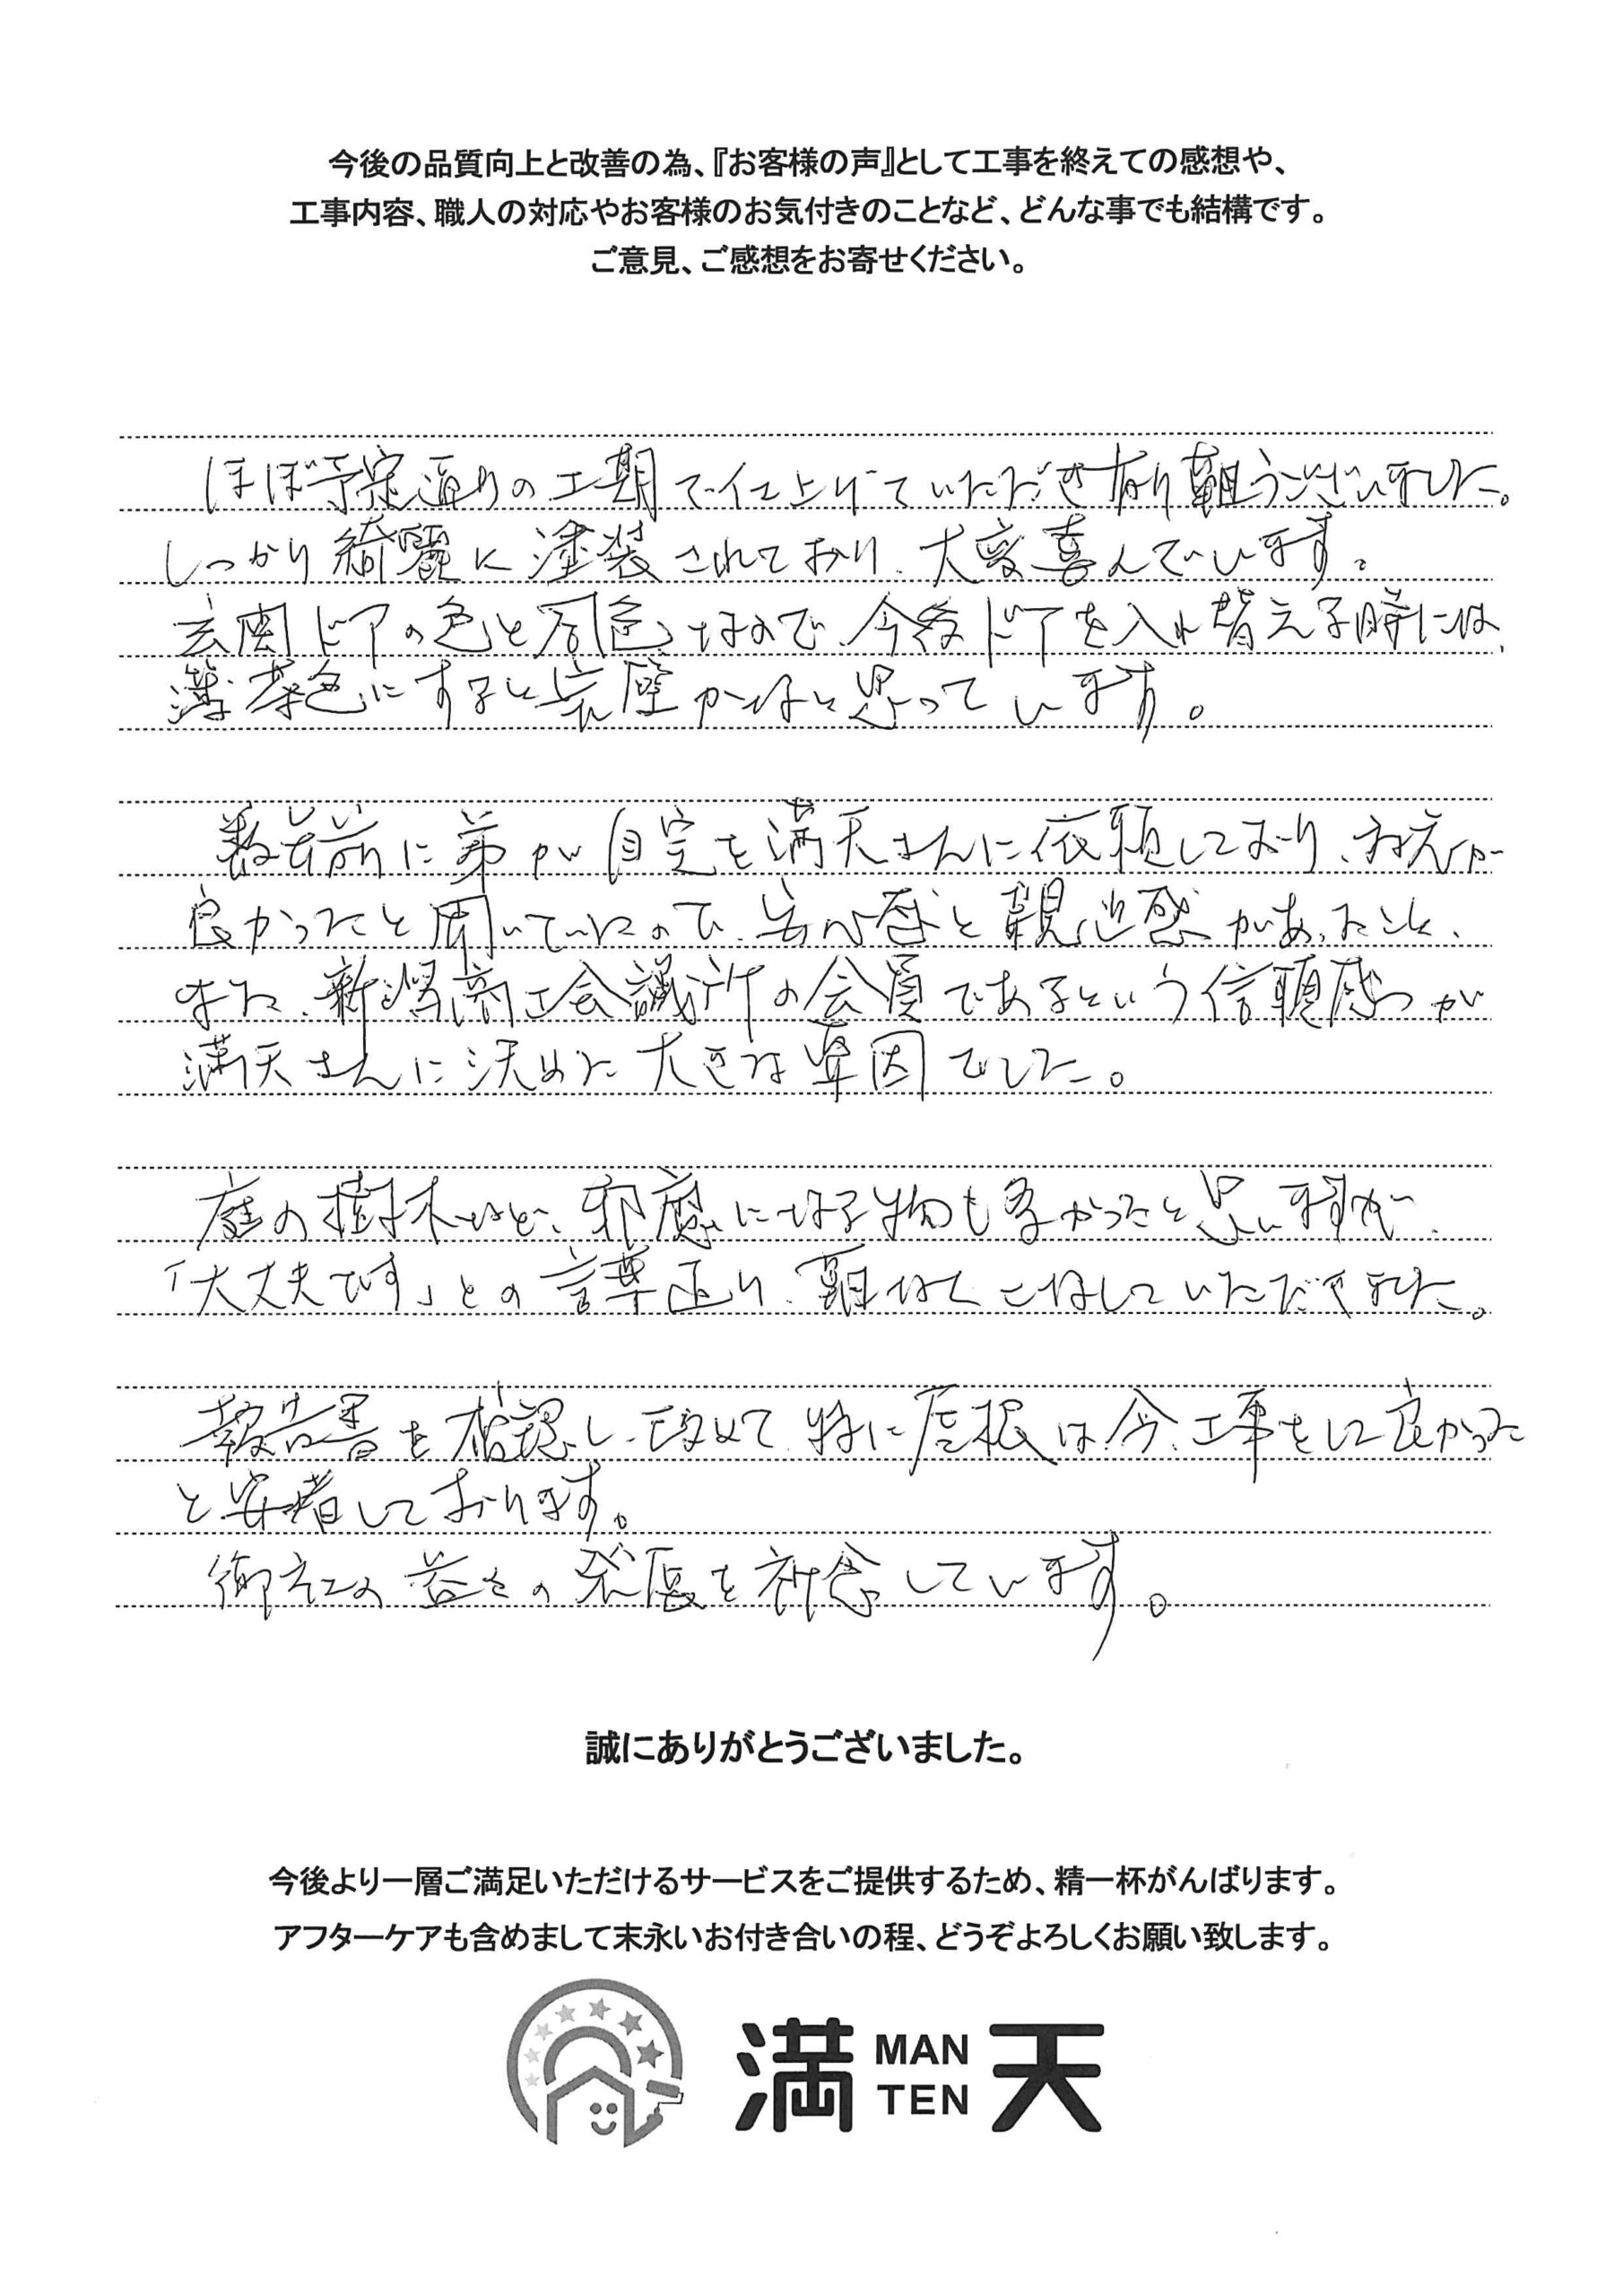 今後の品質向上と改善の為、『お客様の声』として工事を終えての感想や、
工事内容、職人の対応やお客様のお気付きのことなど、どんな事でも結構です。
ご意見、ご感想をお寄せください。
ほぼ予定通りの工期で仕上げていただき有り難うございました。
しっかり綺麗に塗装されており、大変喜んでいます。
玄関ドアの色と同色なので、今後ドアを入れ替える時には、
薄茶色にすると完璧かなと思っています。
数年前に弟が自宅を満天さんに依頼しており、対応が
良かったと聞いていたので、安心感と親近感があったこと、
また、新潟商工会議所の会員であるという信頼感が
満天さんに決めた大きな要因でした。
庭の樹木など、邪魔になる物も多かったと思いますが、
「大丈夫です」との言葉通り、難なくこなしていただきました。
報告書を確認し、改めて、特に屋根は今、工事をして良かった
と安堵しております。
御社の益々の発展を祈念しています。
誠にありがとうございました。
今後より一層ご満足いただけるサービスをご提供するため、精一杯がんばります。
アフターケアも含めまして末永いお付き合いの程、どうぞよろしくお願い致します。
満 MAN TEN 天